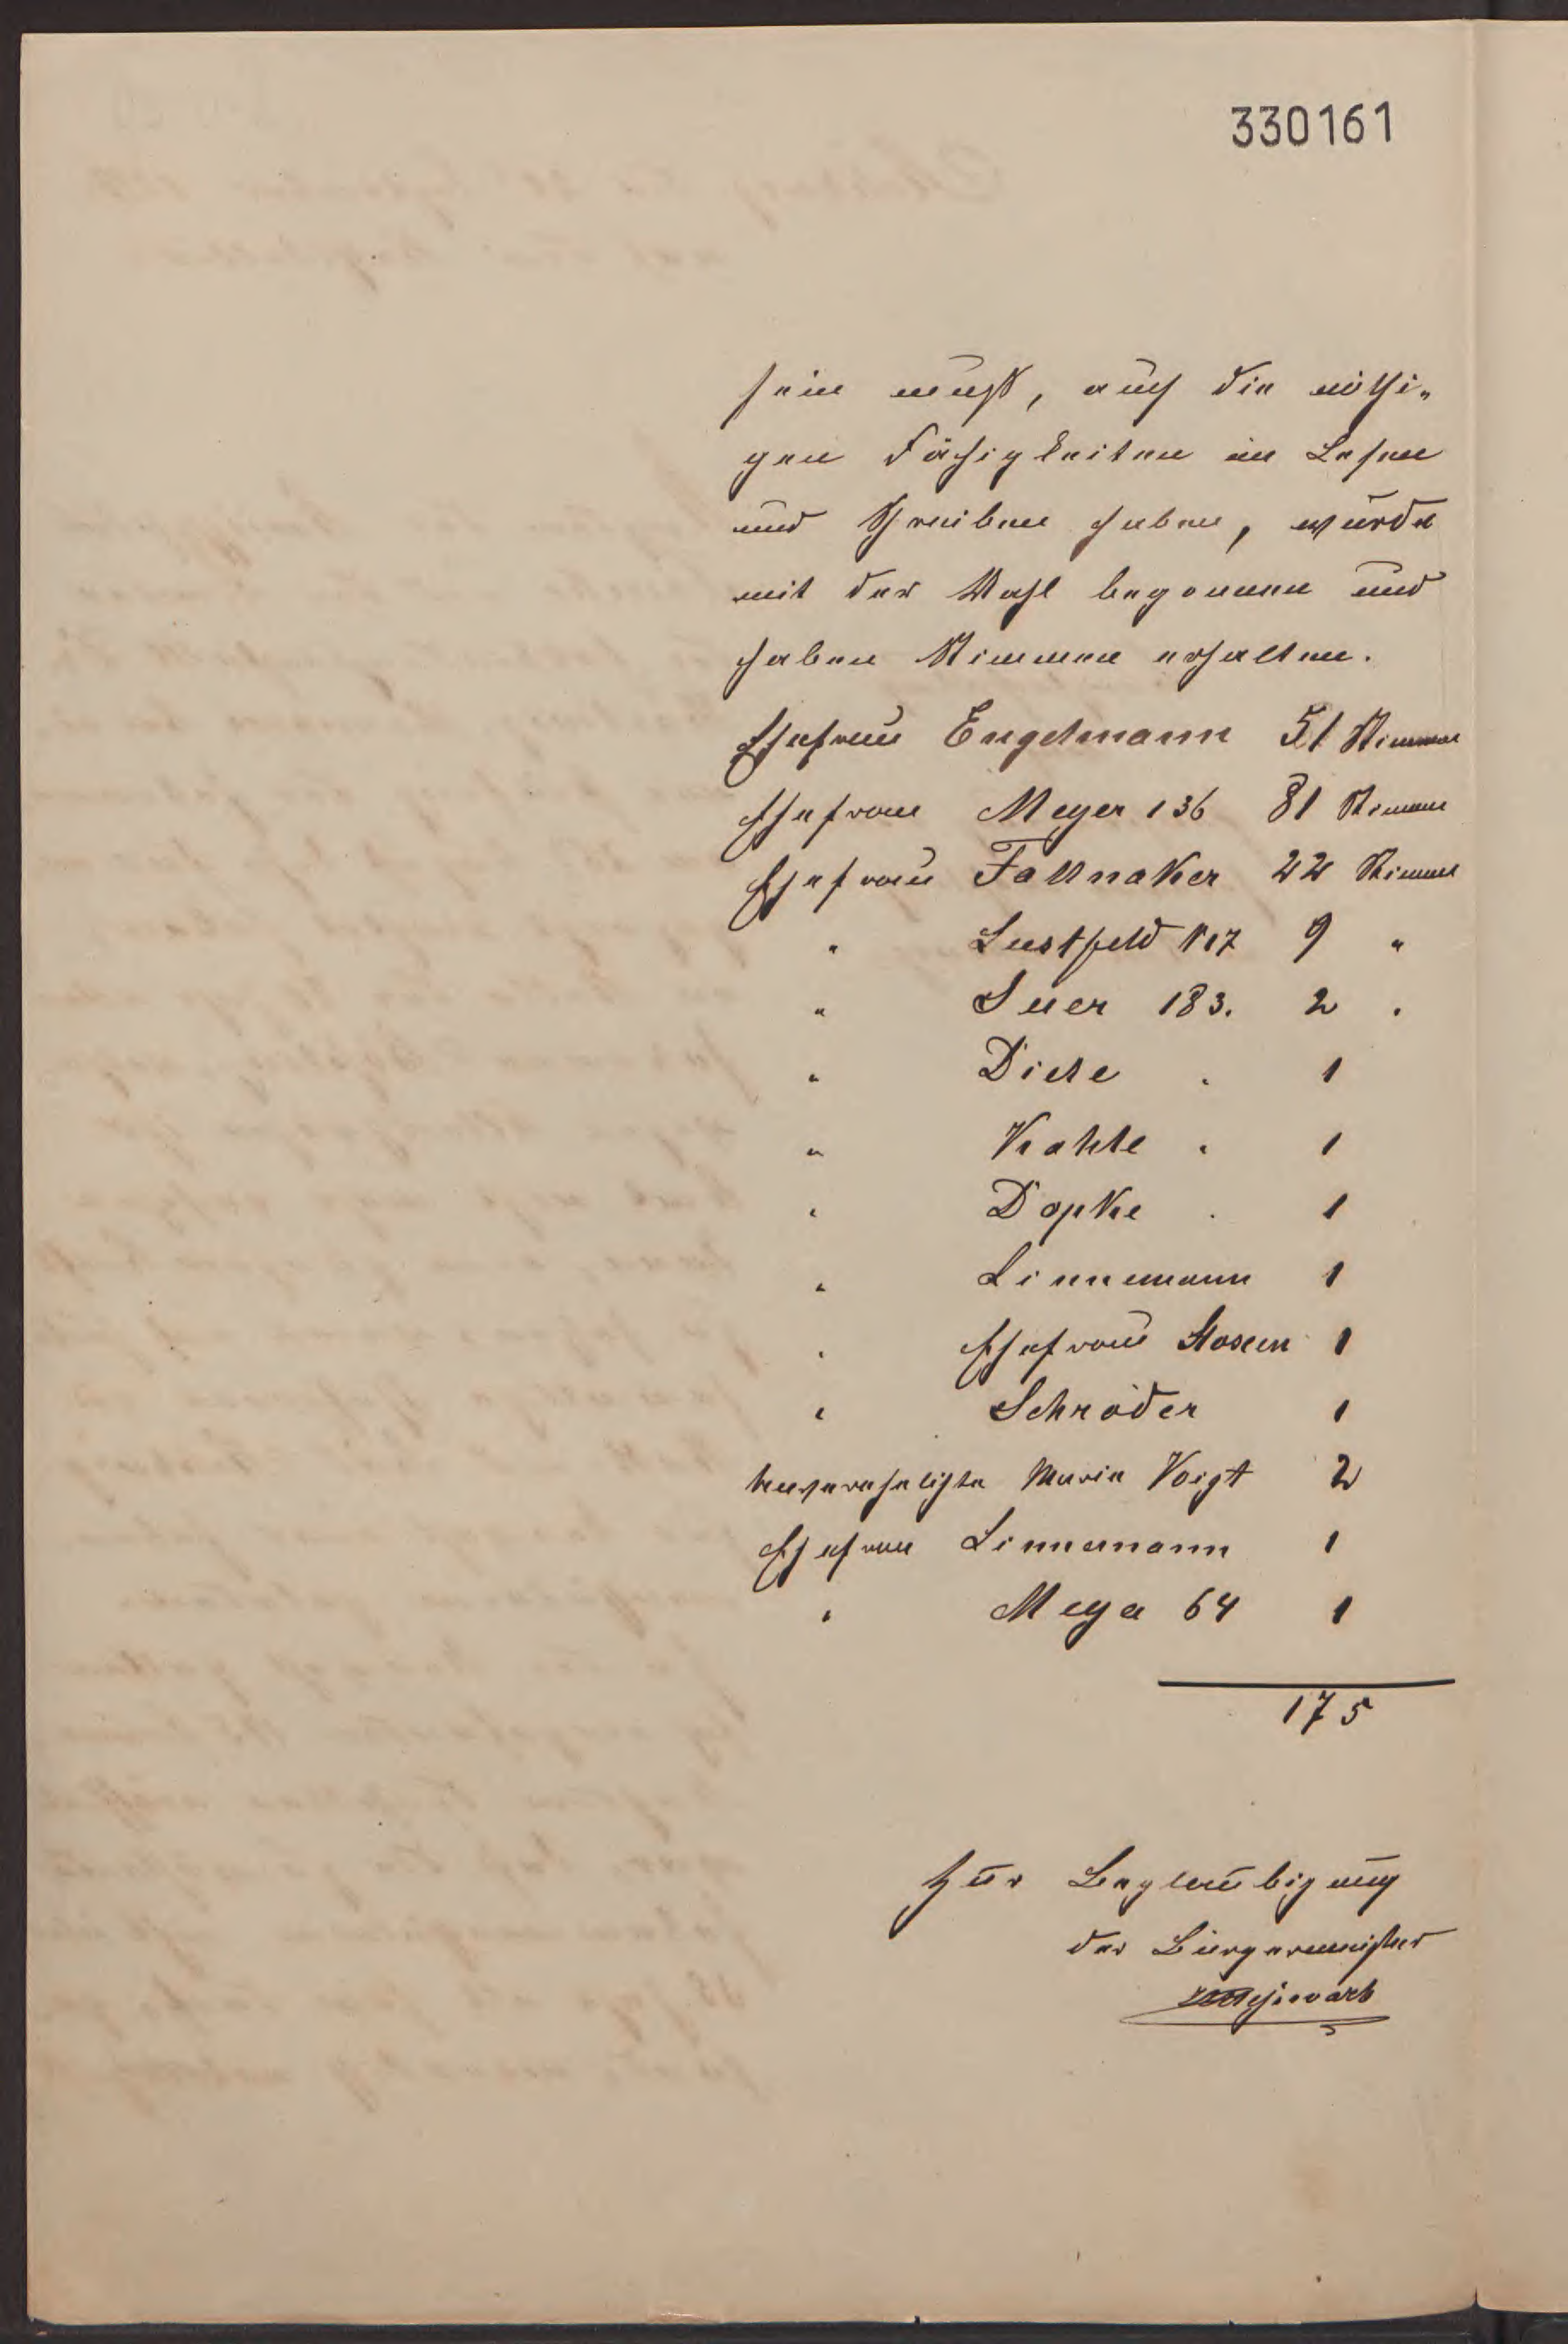 330161
sein muß, auch die nöthi„
gen Fähigkeiten im Lesen
und Schreiben haben, wurde
mit der Wahl begonnen und
haben Stimmen erhalten.
Ehefrau Engelmann 51 Stimmen
Ehefrau Meyer 136 81 Stimmen
Ehefrau Fallnaker 22 Stimmen
" Lustfeld 117 9 "
" Suer 183. 2 "
" Diele " 1
" Kahle " 1
" Dopke " 1
" Linnemann 1
" Ehefrau Stosen 1
" Schröder 1
Unverehelichte Marie Voigt 2
Ehefrau Linnemann 1
" Meya 64 1
175
Zur Beglaubigung
der Bürgermeister